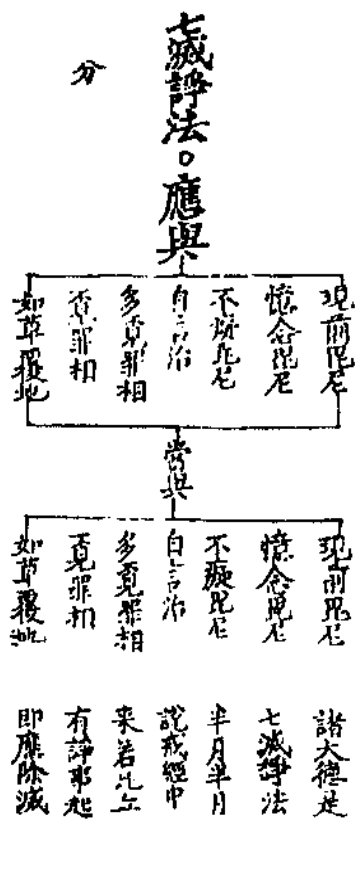 七滅諍法。應與
分
現前毘尼
憶念毘尼
不癡毘尼
自言治
多覓罪相
覓罪相
如草覆地
當與
現前毘尼
憶念毘尼
不癡毘尼
自言治
多覓罪相
覓罪相
如草覆地
諸大德是
七滅諍法
半月半月
說戒經中
来若比丘
有諍事起
即應除滅